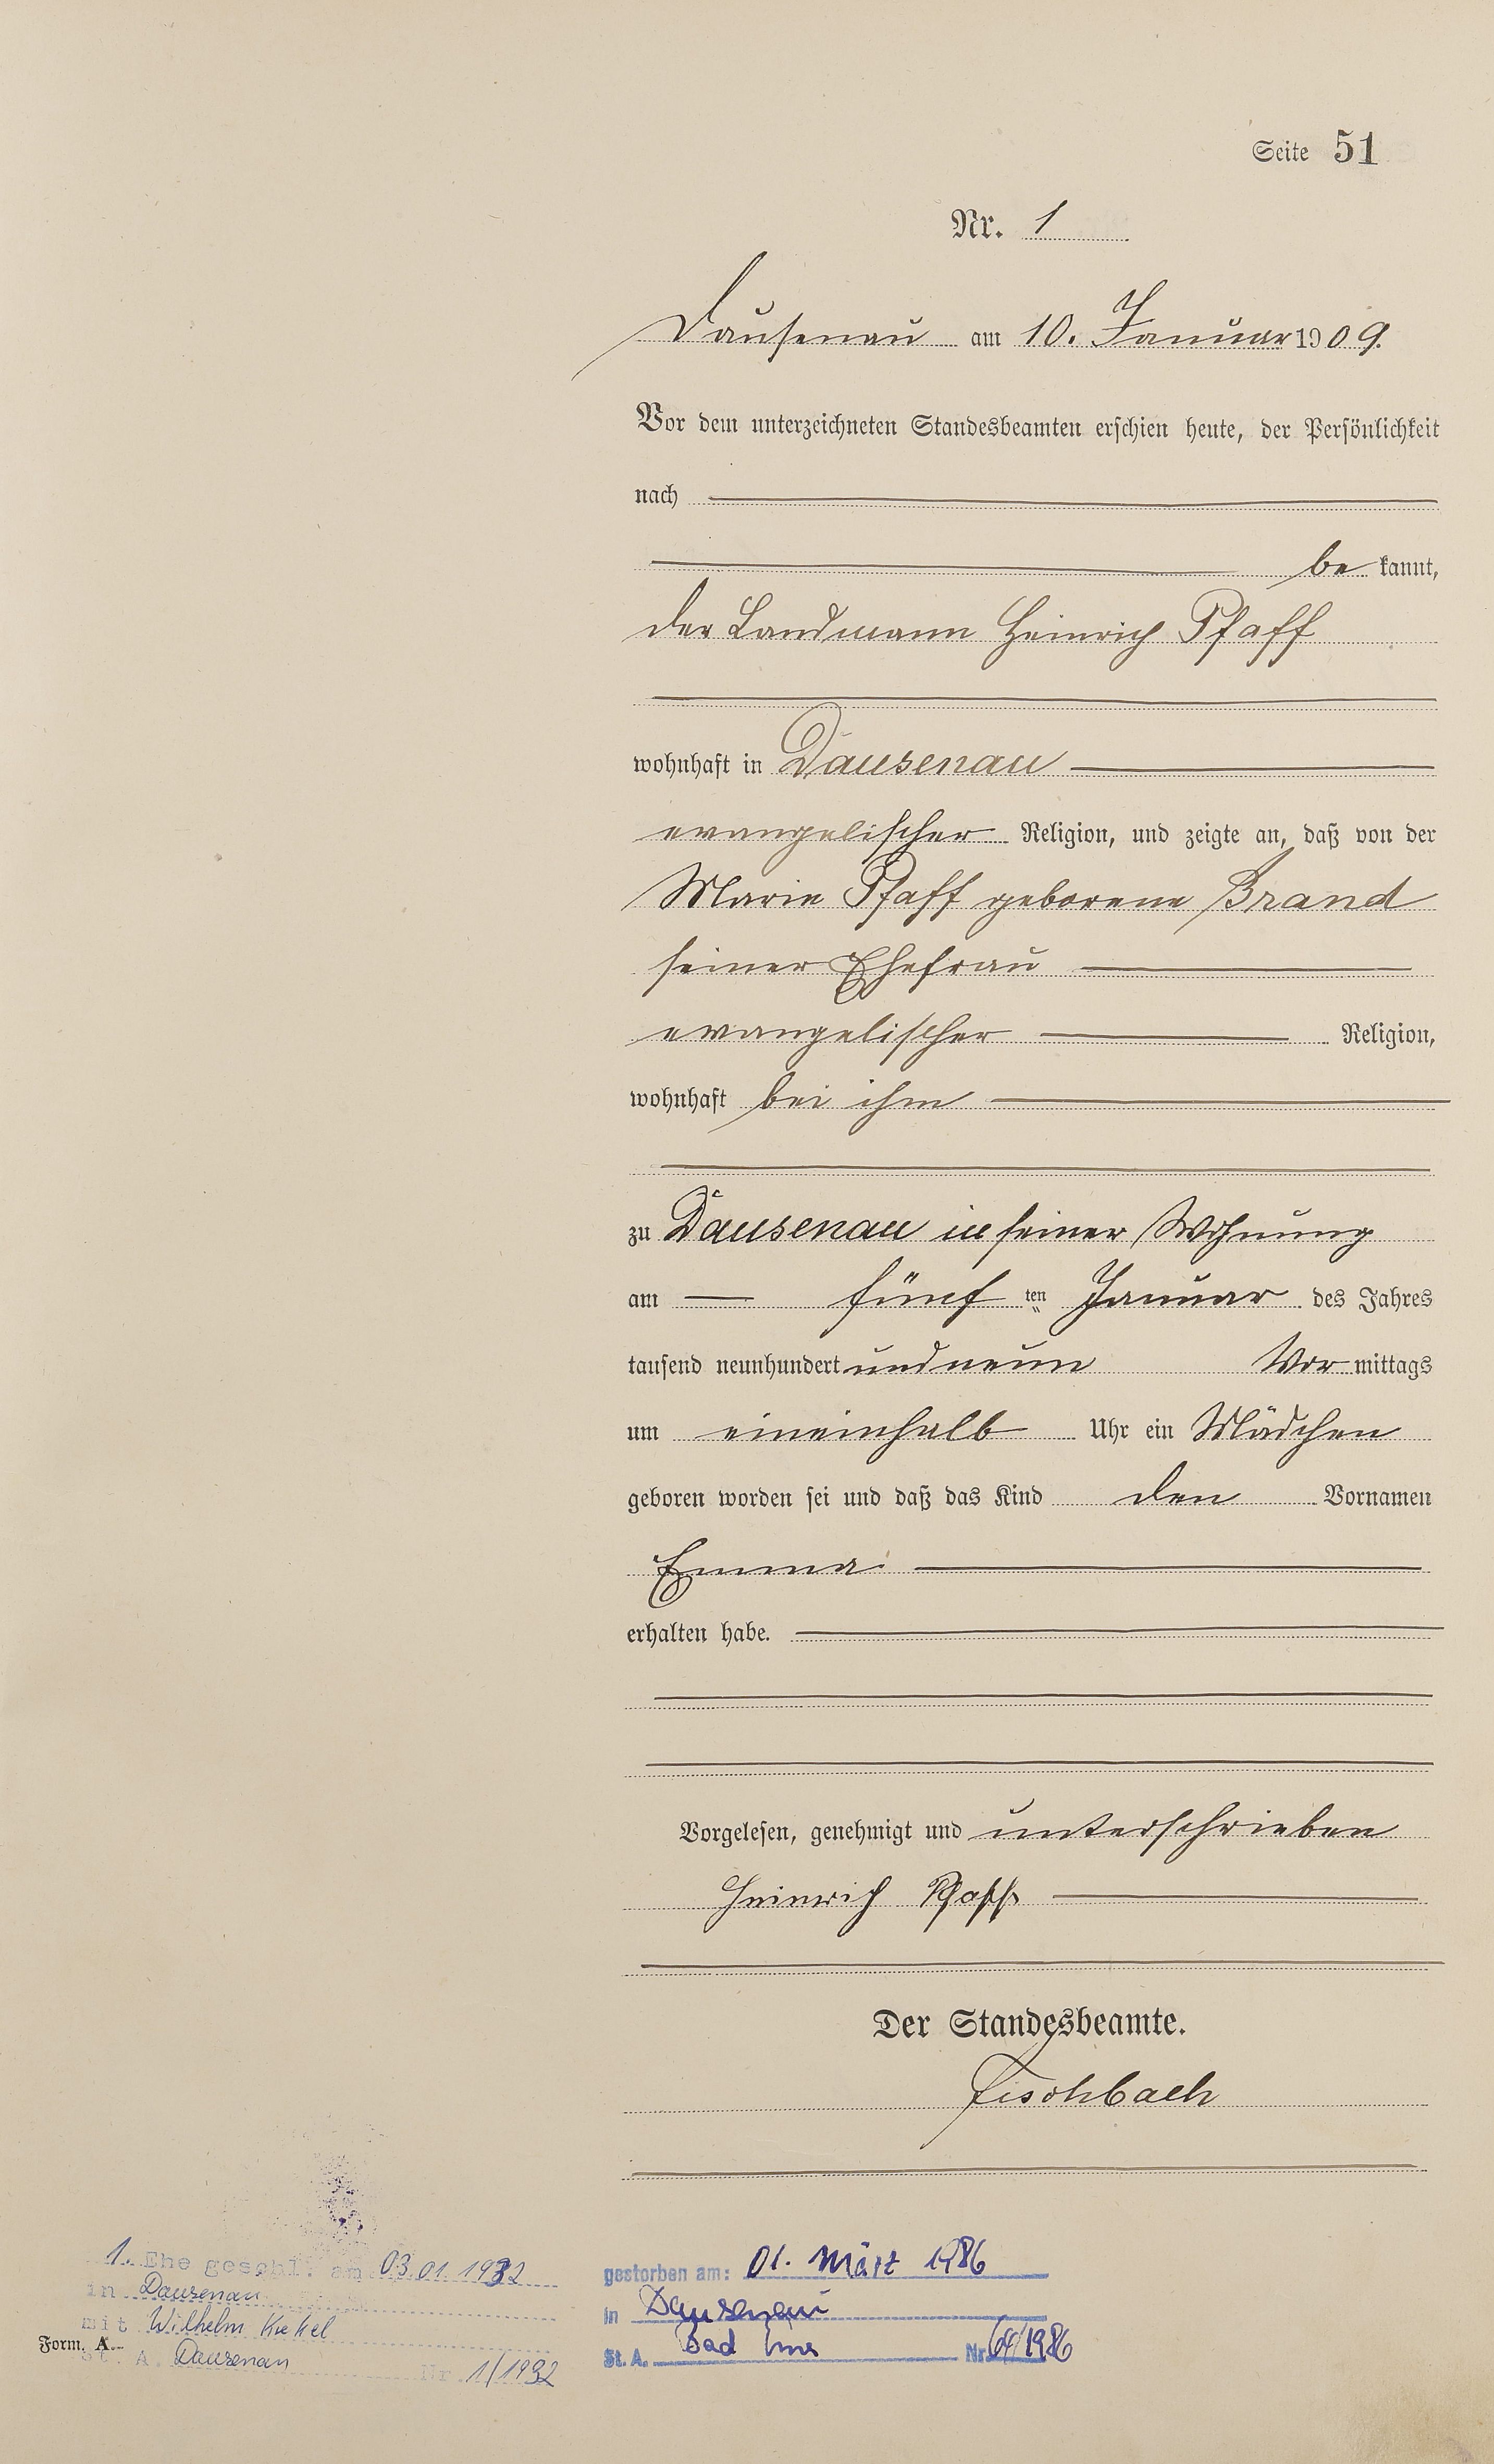 Seite 51
Nr. 1
Dausenau am 10. Januar 1909.
Vor dem unterzeichneten Standesbeamten erschien heute, der Persönlichkeit
nach
be kannt,
der Landmann Heinrich Pfaff
wohnhaft in Dausenau
evangelischer Religion, und zeigte an, daß von der
Marie Pfaff geborene Brand
seiner Ehefrau
evangelischer Religion,
wohnhaft bei ihm
zu Dausenau in seiner Wohnung
am fünf ten Januar des Jahres
tausend neunhundert und neun Vor mittags
um eineinhalb Uhr ein Mädchen
geboren worden sei und daß das Kind den Vornamen
Emma
erhalten habe.
Vorgelesen, genehmigt und unterschrieben
Heinrich Pfaff
Der Standesbeamte.
Fischbach
1. Ehe geschl. am 03.01.1932
in Dausenau
mit Wilhelm
St. A. Dausenau Nr. 1/1932
Form. A.
gestorben am: 01. März 1986
in Dausenau
St. A. Bad Ems Nr. 64/1986